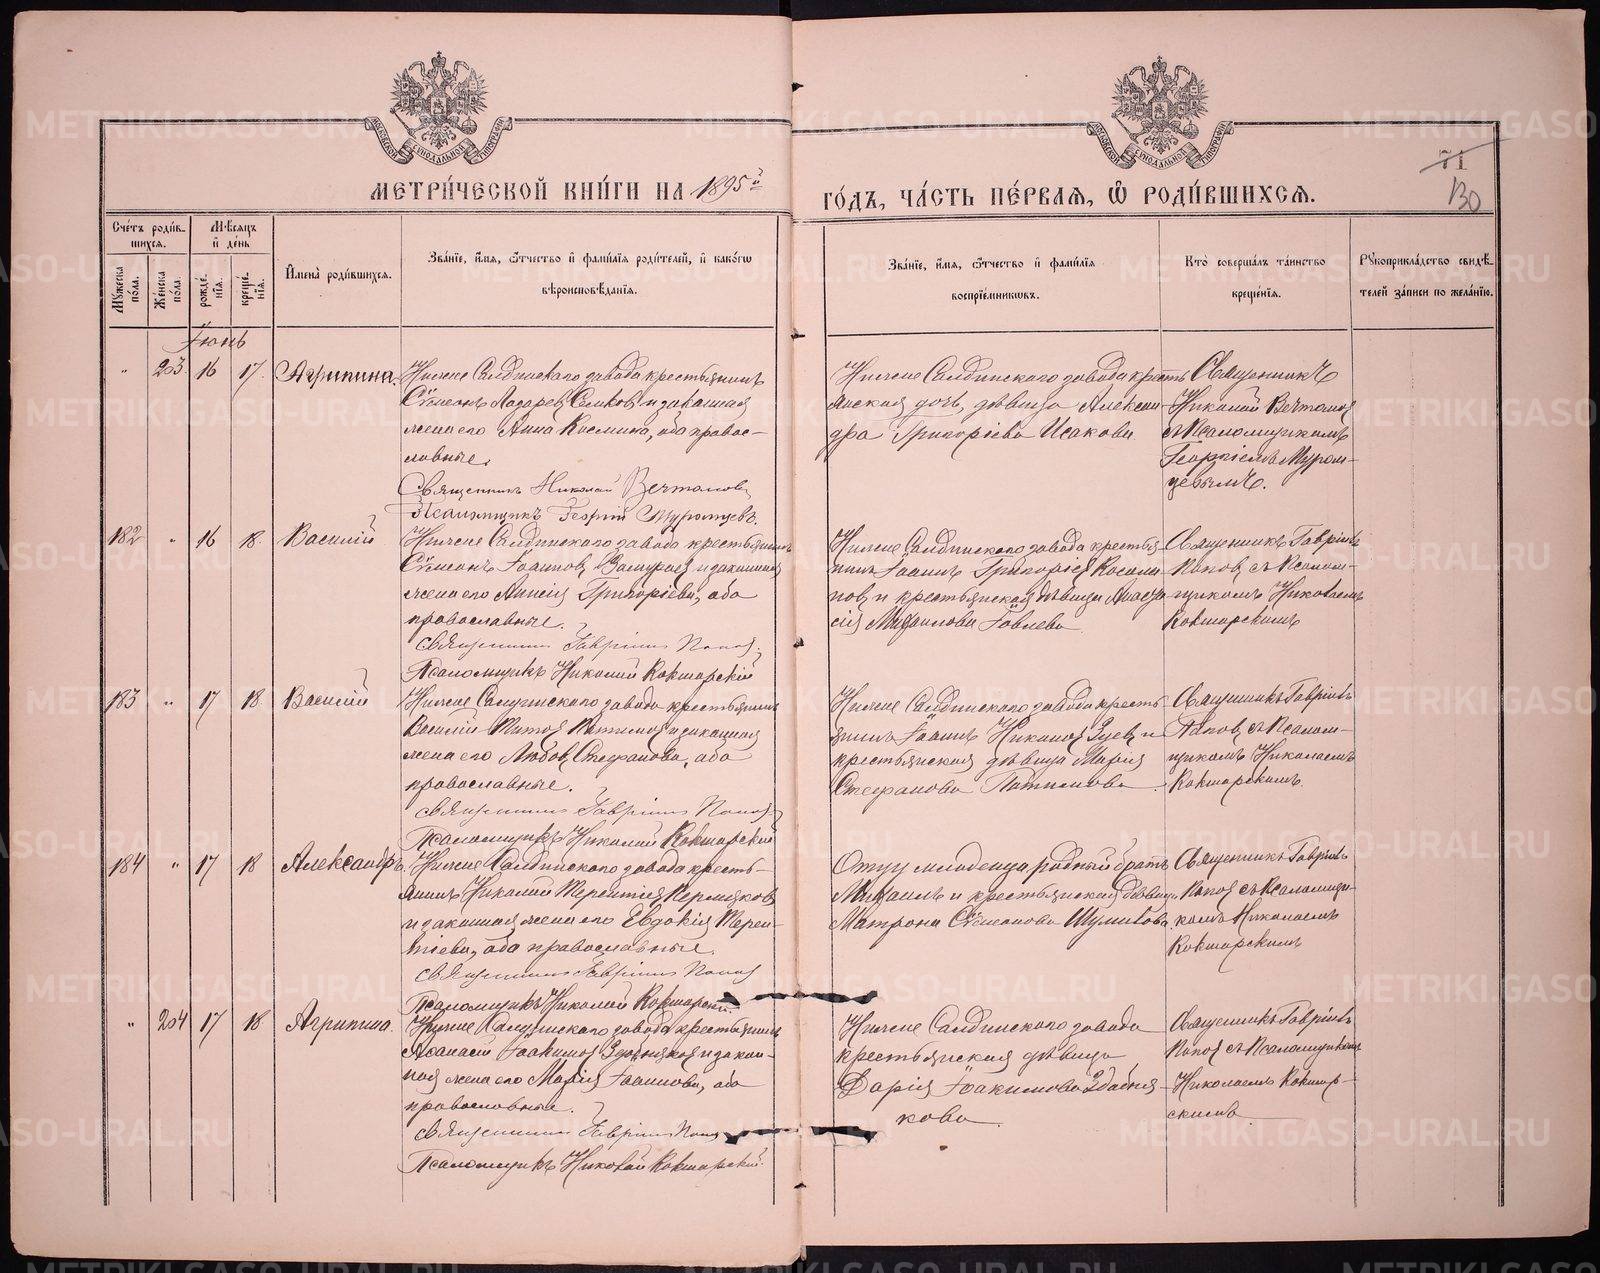 МЕТРИ́ЧЕСКОЙ КНИ́ГИ НА 1895й
ГО́ДЪ, ЧА́СТЬ ПЕ́РВАЯ, Ѡ РОДИ́ВШИХСЯ.
71
130
МОСКОВСКОЙ СУНОДАЛЬНОЙ ТИПОГРАФІИ
МОСКОВСКОЙ СУНОДАЛЬНОЙ ТИПОГРАФІИ
Сче́тъ роди́в-
шихся.
Мѣ́сяцъ
и де́нь
Му́жеска по́ла.
Же́нска по́ла.
рожде́-
нїя.
креще́-
нїя.
Имена̀ роди́вшихся.
Зва́нїе, и́мя, ѻ҆́тчество и фами́лїя роди́телей, и како́гѡ
вѣроисповѣ́данїя.
Зва́нїе, и́мя, ѻ҆́тчество и фами́лїя
воспрїе́мникѡвъ.
Кто̀ соверша́лъ та́инство
креще́нїя.
Рꙋкоприкла́дство свидѣ́-
телей за́писи по жела́нїю.
Іюнь
" 203 16 17 Агрипина.
Нижне Салдинскаго завода крестьянинъ
Стефанъ Лазаревъ и законная
жена его Анна Космина, оба правос-
лавные.
Священникъ Николай Вечтомовъ
Псаломщикъ Георгій Муромцевъ.
Нижне Салдинскаго завода кресть
янская дочь, дѣвица Алексан-
дра Григоріева Исакова
Священникъ
Николай Вечтомовъ
съ Псаломщикомъ
Георгіемъ Муром-
цевымъ.
182 " 16 18 Василій
Нижне Салдинскаго завода крестьянинъ
Іоанновъ и законная
жена его Анисія Григоріева, оба
православные.
Священникъ Гавріилъ Поповъ
Псаломщикъ Николай Кокшарскій
Нижне Салдинскаго завода крестья
нинъ Іоаннъ Григоріевъ
и крестьянская дѣвица Анаста
сія Михаилова
Священникъ Гавріилъ
Поповъ съ Псалом-
щикомъ Николаемъ
Кокшарскимъ
183 " 17 18 Василій
Нижне Салдинскаго завода крестьянинъ
Василій Титовъ и законная
жена его Любовь Стефанова, оба
православные.
Священникъ Гавріилъ Поповъ
Псаломщикъ Николай Кокшарскій
Нижне Салдинскаго завода кресть
янинъ Іоаннъ Никитовъ Зуевъ и
крестьянская дѣвица Марія
Стефанова
Священникъ Гавріилъ
Поповъ съ Псалом-
щикомъ Николаемъ
Кокшарскимъ.
184 " 17 18 Александръ.
Нижне Салдинскаго завода кресть-
янинъ Николай Терентіевъ Пермяковъ
и законная жена его Евдокія Терен-
тіева, оба православные.
Священникъ Гавріилъ Поповъ
Псаломщикъ Николай Кокшарскій.
Отцу младенца родный братъ
Михаилъ и крестьянская дѣвица
Матрона Стефанова Шумилова
Священникъ Гавріилъ
Поповъ съ Псаломщи-
комъ Николаемъ
Кокшарскимъ
" 204 17 18 Агрипина.
Нижне Салдинскаго завода крестьянинъ
Аѳанасій Іоакимовъ и закон-
ная жена его Марія Іоаннова, оба
православные.
Священникъ Гавріилъ Поповъ
Псаломщикъ Николай Кокшарскій.
Нижне Салдинскаго завода
крестьянская дѣвица
Дарія Іоакимова Здобня-
кова.
Священникъ Гавріилъ
Поповъ съ Псаломщикомъ
Николаемъ Кокшар-
скимъ
METRIKI.GASO-URAL.RU